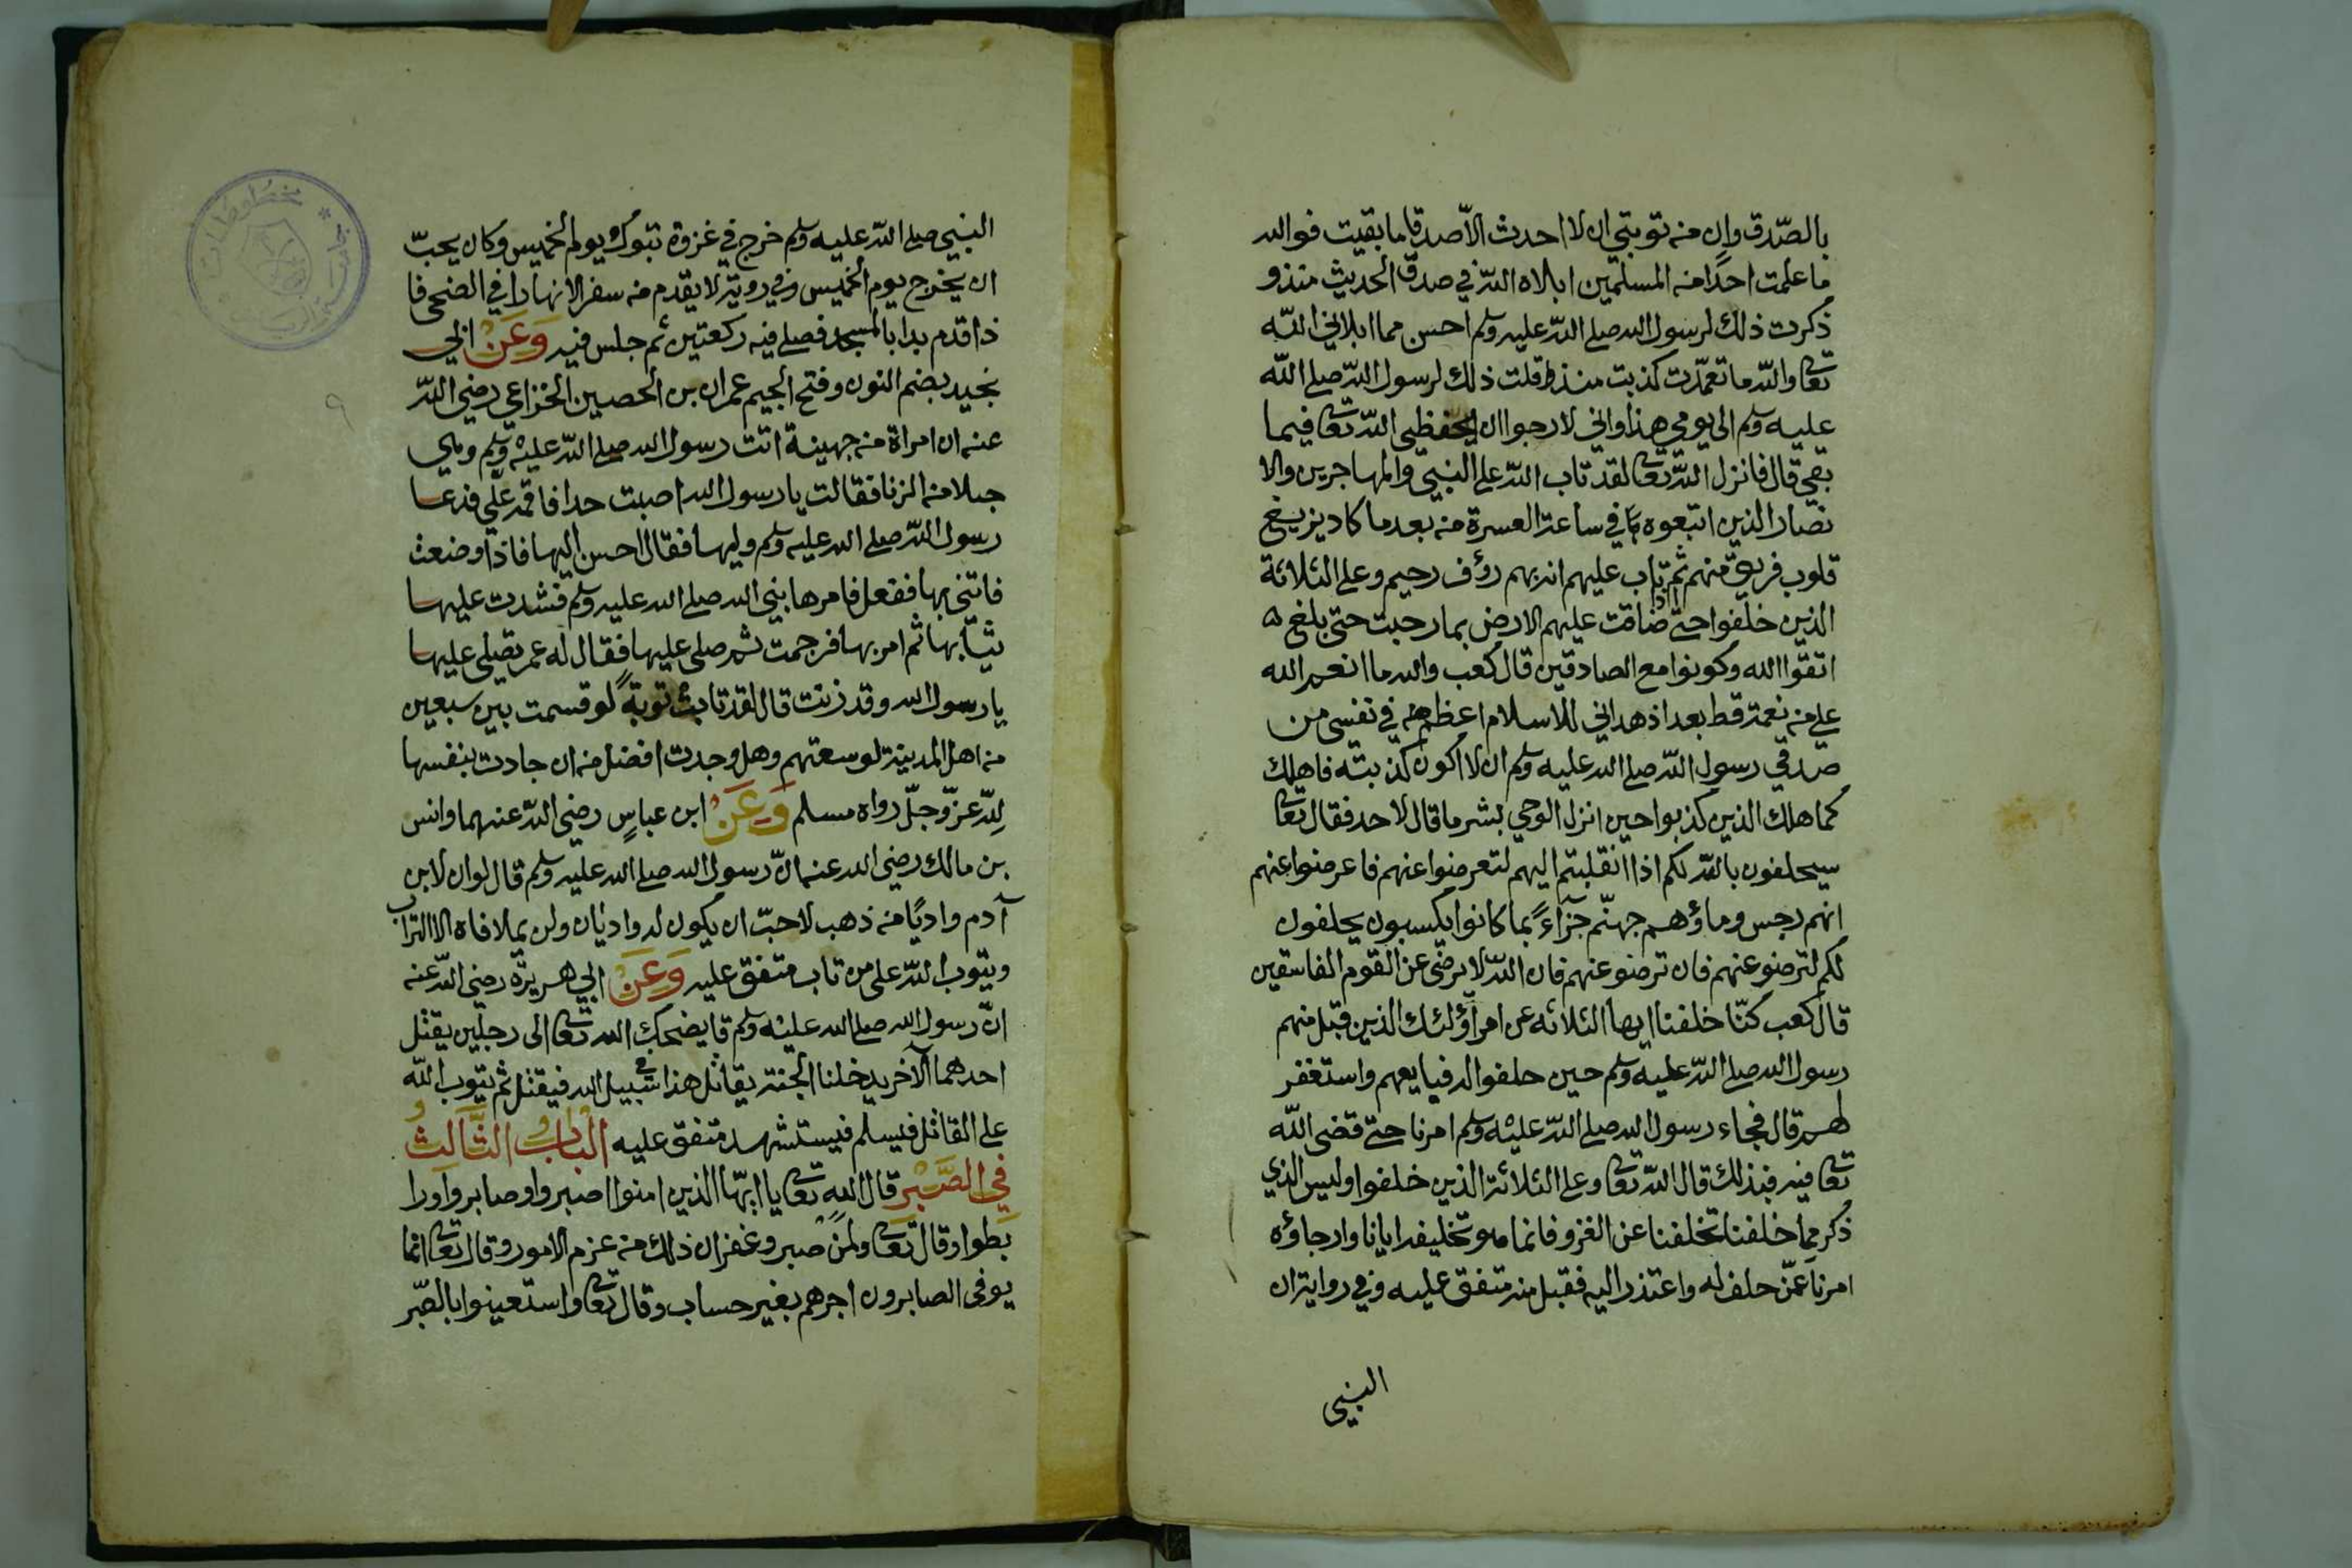 بالصّدق وان من توبتي ان لا احدث الّا صدقا ما بقيت فوالله
ما علمت احدًا من المسلمين ابلاه الله في صدق الحديث منذو
ذكرت ذلك لرسول الله صلى الله عليه وسلم احسن مما ابلاني الله
تعا والله ما تعمّدت كذبت منذ قلت ذلك لرسول الله صلى الله
عليه وسلم الى يومي هذا واني لارجوا ان يحفظني الله تعا فيما
بقي قال فانزل الله تعا لقد تاب الله على النبي والمهاجرين والا
نصار الذين اتبعوه في ساعة العسرة من بعد ما كاد يزيغ
قلوب فريق منهم ثم تاب عليهم انه بهم رؤف رحيم وعلى الثلاثة
الذين خلفوا حتى اذا ضاقت عليهم الارض بما رحبت حتى بلغ
اتقوا الله وكونوا مع الصادقين قال كعب والله ما انعم الله
علي من نعمة قط بعد اذ هداني للاسلام اعظم في نفسي من
صدقي رسول الله صلى الله عليه وسلم ان لا اكون كذبته فاهلك
كما هلك الذين كذبوا حين انزل الوحي بشر ما قال لاحد فقال تعا
سيحلفون بالله لكم اذا انقلبتم اليهم لتعرضوا عنهم فاعرضوا عنهم
انهم رجس وماؤهم جهنّم جزآءً بما كانوا يكسبون يحلفون
لكم لترضو عنهم فان ترضو عنهم فان الله لا يرضى عن القوم الفاسقين
قال كعب كنّا خلفنا ايها الثلاثه عن امر اؤلئك الذين قبل منهم
رسول الله صلى الله عليه وسلم حين حلفوا له فبايعهم واستغفر
لهم قال فجاء رسول الله صلى الله عليه وسلم امرنا حتى قضى الله
تعا فيه فبذلك قال الله تعا وعلى الثلاثة الذين خلفوا وليس الذي
ذكر مما خلفنا تخلفنا عن الغزو فانما هو تخليفه ايانا وارجاؤه
امرنا عمّن حلف له واعتذر اليه فقبل منه متفق عليه وفي رواية ان
النبي
النبي صلى الله عليه وسلم خرج في غزوة تبوك يوم الخميس وكان يحبّ
ان يخرج يوم الخميس وفي روية لا يقدم من سفر الا نهارا في الضحى فا
ذا قدم بدا بالمسجد فصلى فيه ركعتين ثم جلس فيه وَعَنْ ابي
نجيد بضم النون وفتح الجيم عمران بن الحصين الخزاعي رضي الله
عنه ان امراة من جهينة اتت رسول الله صلى الله عليه وسلم وهي
حبلا من الزنا فقالت يا رسول الله اصبت حدا فاقمه علّي فدعا
رسول الله صلى الله عليه وسلم وليها فقال احسن اليها فاذا وضعت
فاتني بها ففعل فامر ها نبي الله صلى الله عليه وسلم فشدت عليها
ثيابها ثم امر بها فرجمت ثم صلى عليها فقال له عمر تصلي عليها
يا رسول الله وقد زنت قال لقد تابت توبةً لو قسمت بين سبعين
من اهل المدينة لوسعتهم وهل وجدت افضل من ان جادت بنفسها
لله عزّ وجلّ رواه مسلم وَعَنْ ابن عباسٍ رضي الله عنهما وانس
بن مالك رضي الله عنه انّ رسول الله صلى الله عليه وسلم قال لو ان لابن
آدم واديًا من ذهب لاحبّ ان يكون له واديان ولن يملا فاه الا التراب
ويتوب الله على من تاب متفق عليه وَعَنْ ابي هريرة رضي الله عنه
انّ رسول الله صلى الله عليه وسلم قا يضحك الله تعا الى رجلين يقتل
احدهما الآخر يدخلنا الجنة يقاتل هذا في سبيل الله فيقتل ثم يتوب الله
على القاتل فيسلم فيستشهد متفق عليه البابُ الثَّالثُ
في الصَّبْرِ قال الله تعا يا ايهّا الذين امنوا اصبروا وصابروا ورا
بطوا وقال تعا ولمن صبر وغفر ان ذلك من عزم الامور وقال تعا انما
يوفى الصابرون اجرهم بغير حساب وقال تعا واستعينوا بالصّبر
٩